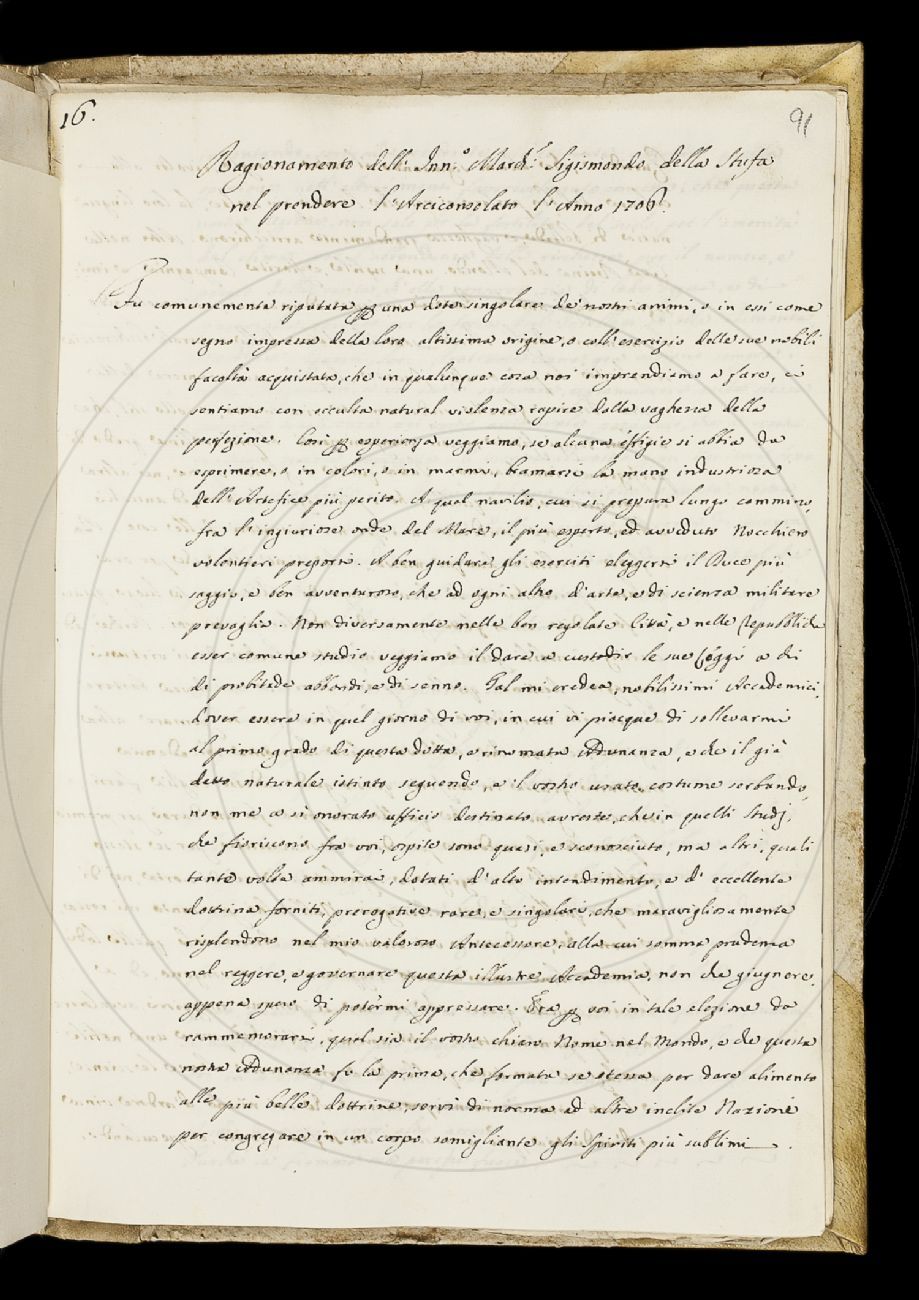 16.
91
Ragionamento dell' Inn.º March.ᵉ Sigismondo della Stufa
nel prendere l'Arciconsolato l'Anno 1706.
Fu comunemente riputata p una dote singolare de' nostri animi, o in essi come
segno impressa della loro altissima origine, o coll'esercizio delle sue nobili
facoltà acquistata, che in qualunque cosa noi imprendiamo a fare, ci
sentiamo con occulta natural violenza rapire dalla vaghezza della
perfezione. Così p esperienza veggiamo, se alcuna effigie si abbia da
esprimere, o in colori, o in marmi, bramarsi la mano industriosa
dell'Artefice più perito. A qual navilio, cui si prepara lungo cammino,
fra l'ingiuriose onde del Mare, il più esperto, ed avveduto Nocchiero
volontieri preporsi. A ben guidare gli eserciti eleggersi il Duce più
saggio, e ben avventuroso, che ad ogni altro d'arte, e di scienza militare
prevaglia. Non diversamente nelle ben regolate Città, e nelle Repubbliche
esser comune studio veggiamo il dare a custodir le sue leggi a chi
di probitade abbondi, e di senno. Tal mi credea, nobilissimi Accademici,
dover essere in quel giorno di voi, in cui vi piacque di sollevarmi
al primo grado di questa dotta, e rinomata Adunanza, e che il già
detto naturale istinto seguendo, e 'l vostro usato costume serbando,
non me a sì onorato ufficio destinato avreste, che in quelli studj,
che fioriscono fra voi, ospite sono quasi, e sconosciuto, ma altri, quali
tante volte ammirai, dotati d'alto intendimento, e d'eccellente
dottrina forniti, prerogative rare, e singolari, che maravigliosamente
risplendono nel mio valoroso Antecessore, alla cui somma prudenza
nel reggere, e governare questa illustre Accademia, non che giugnere,
appena spero di potermi appressare. Era p voi in tale elezione da
rammemorarsi, qual sia il vostro chiaro Nome nel Mondo, e che questa
nostra Adunanza fu la prima, che formata se stessa per dare alimento
alle più belle dottrine, servì di norma ad altre inclite Nazioni
per congregare in un corpo somigliante gli spiriti più sublimi.